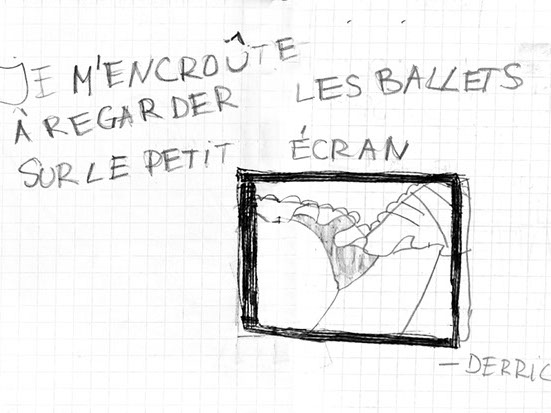 JE M'ENCROÛTE
À REGARDER LES BALLETS
SUR LE PETIT ÉCRAN
— DERRIC